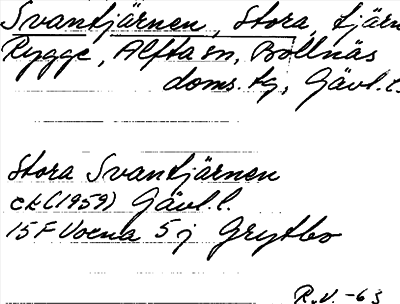 Svantjärnen, Stora, tjärn
Rygge, Alfta sn, Bollnäs
doms. tg, Gävl. l.
Stora Svantjärnen
ek (1959) Gävl. l.
15F Voxna 5j Grytbo
R.V. -63